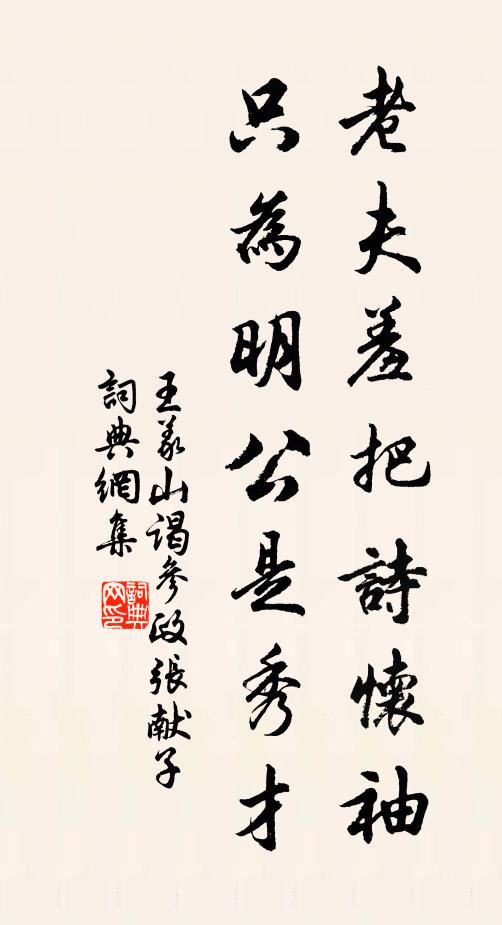 老夫羞把詩懷袖
只為明公是秀才
王義山謁參政張献子
詞典網集
詞典网印